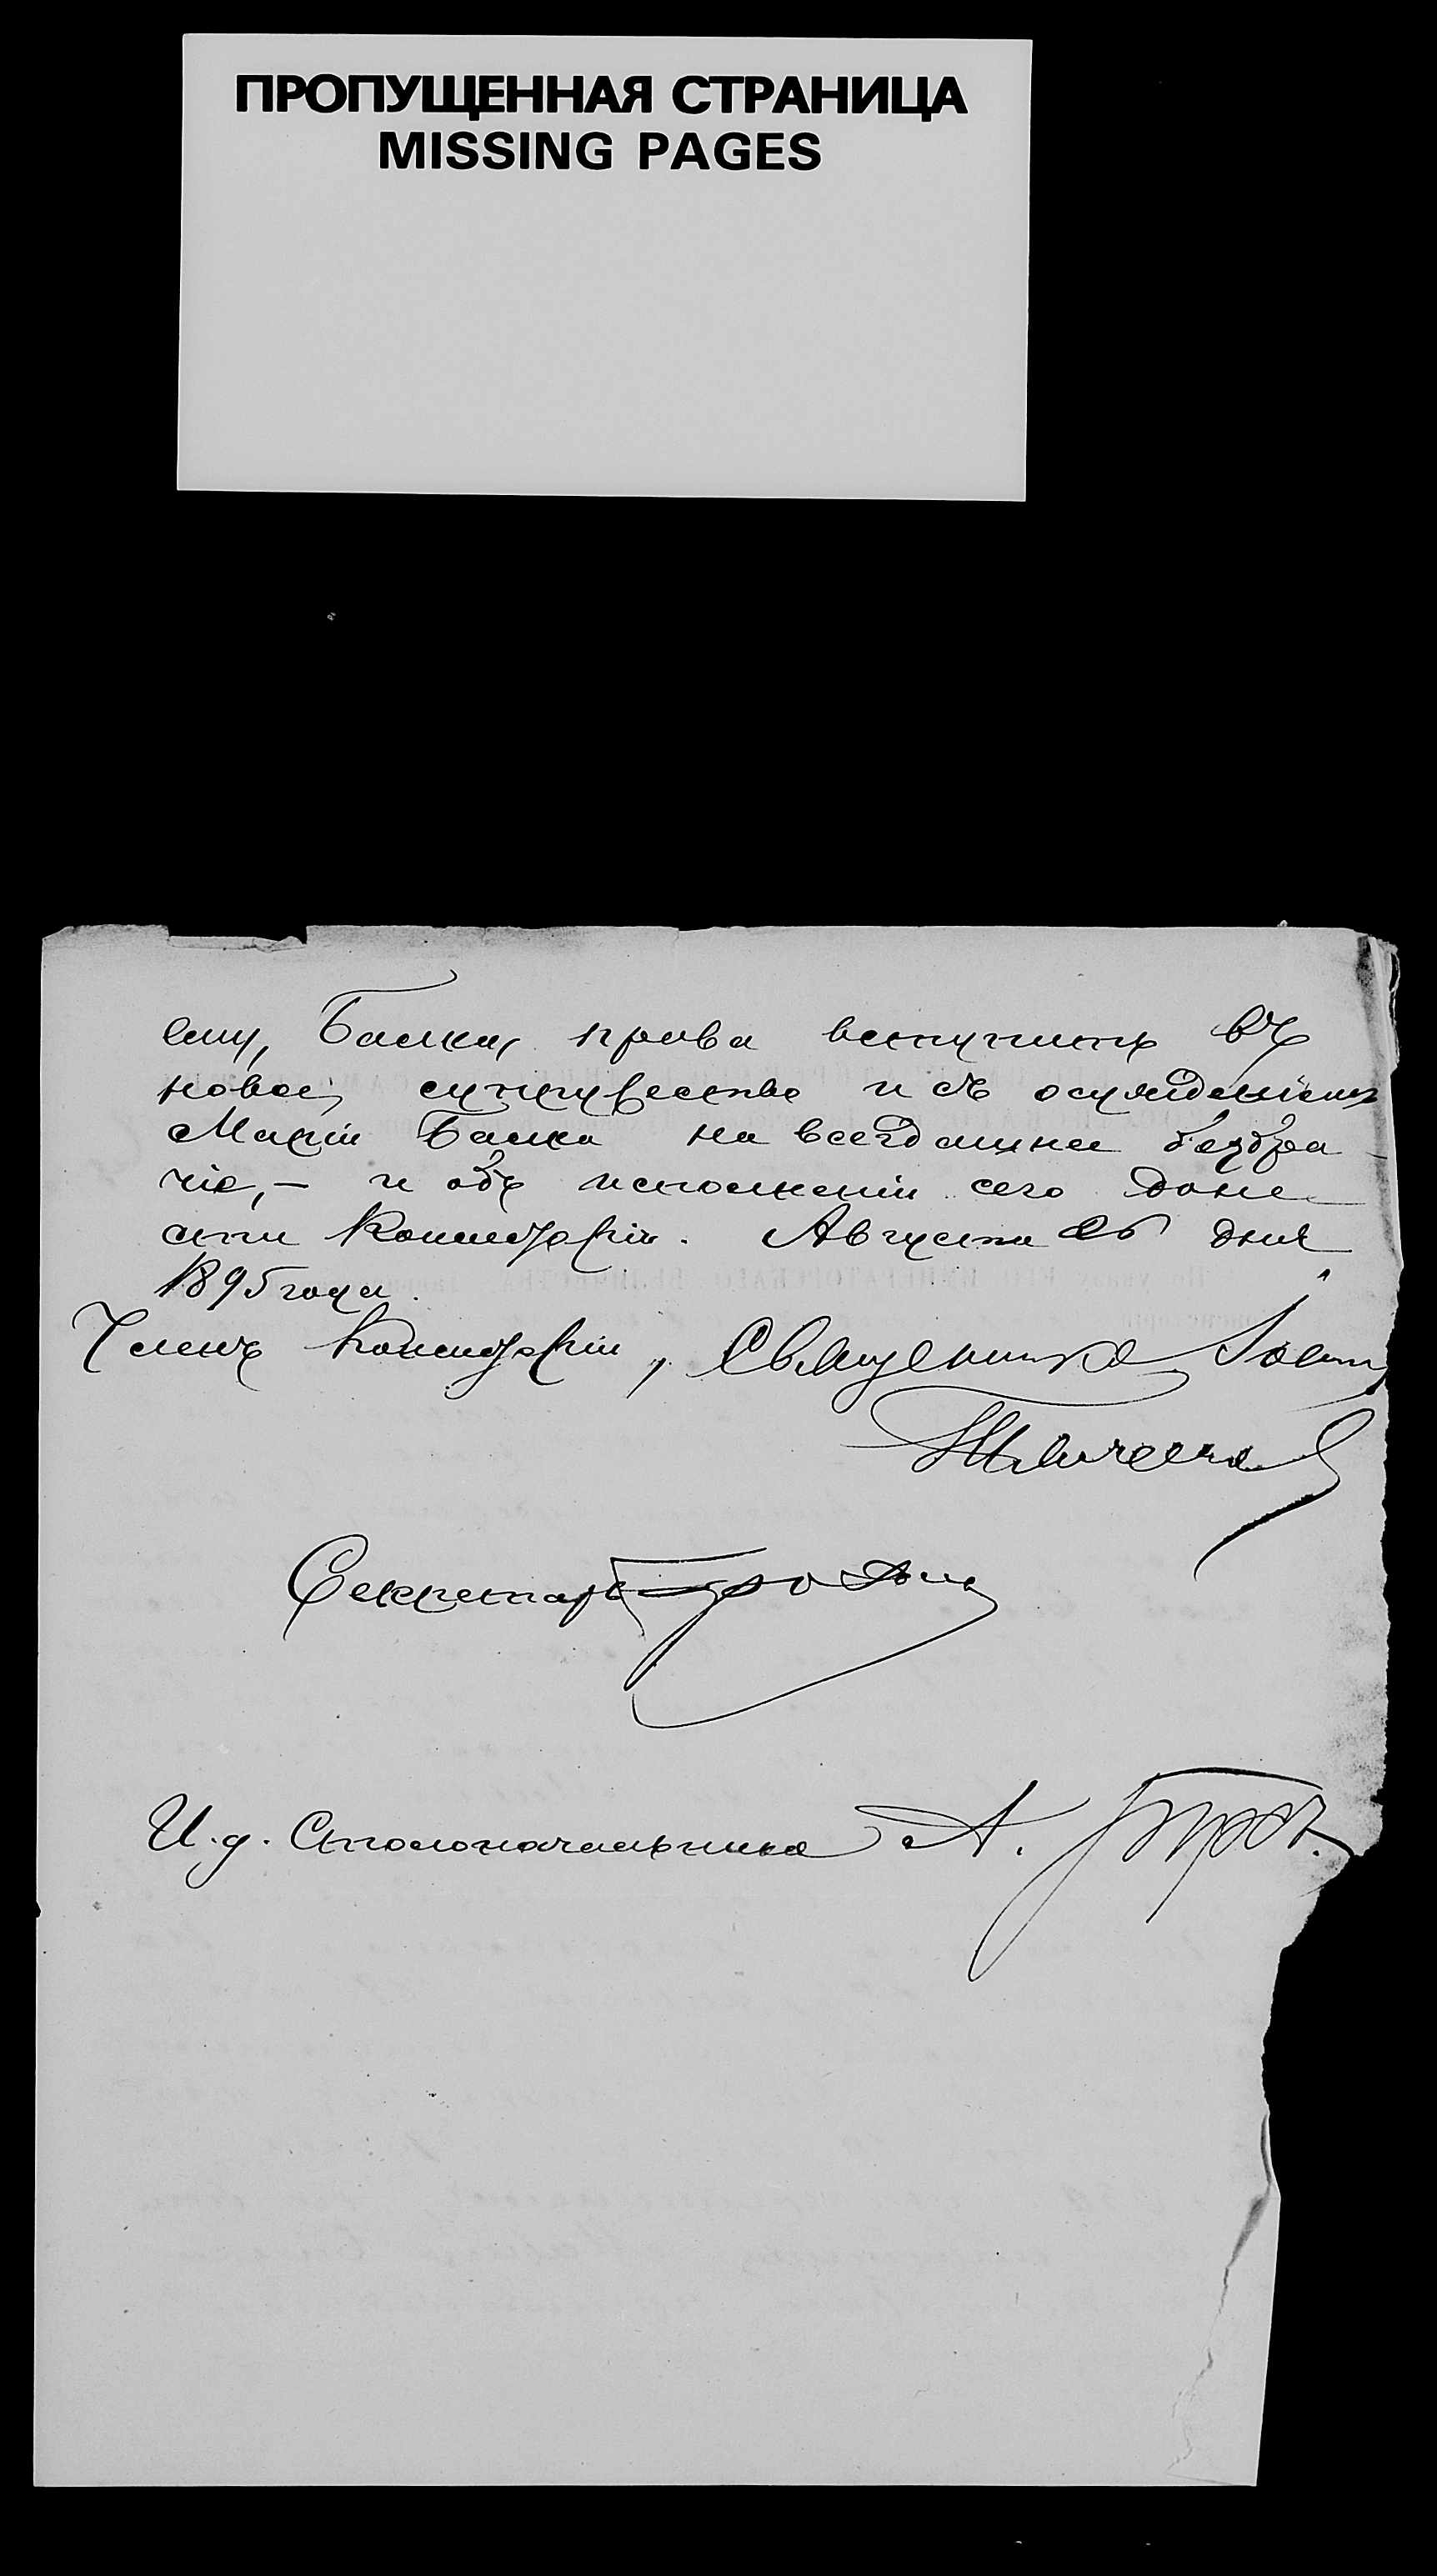 ПРОПУЩЕННАЯ СТРАНИЦА
MISSING PAGES
ему, Балка, права вступить въ
новое супружество и съ осужденіемъ
Маріи Балка на всегдашнее безбра-
чіе, – и объ исполненіи сего доне
сти Консисторіи. Августа 26 дня
1895 года.
Членъ Консисторіи, Священникъ Іоаннъ
Секретарь
И. д. Столоначальника А.